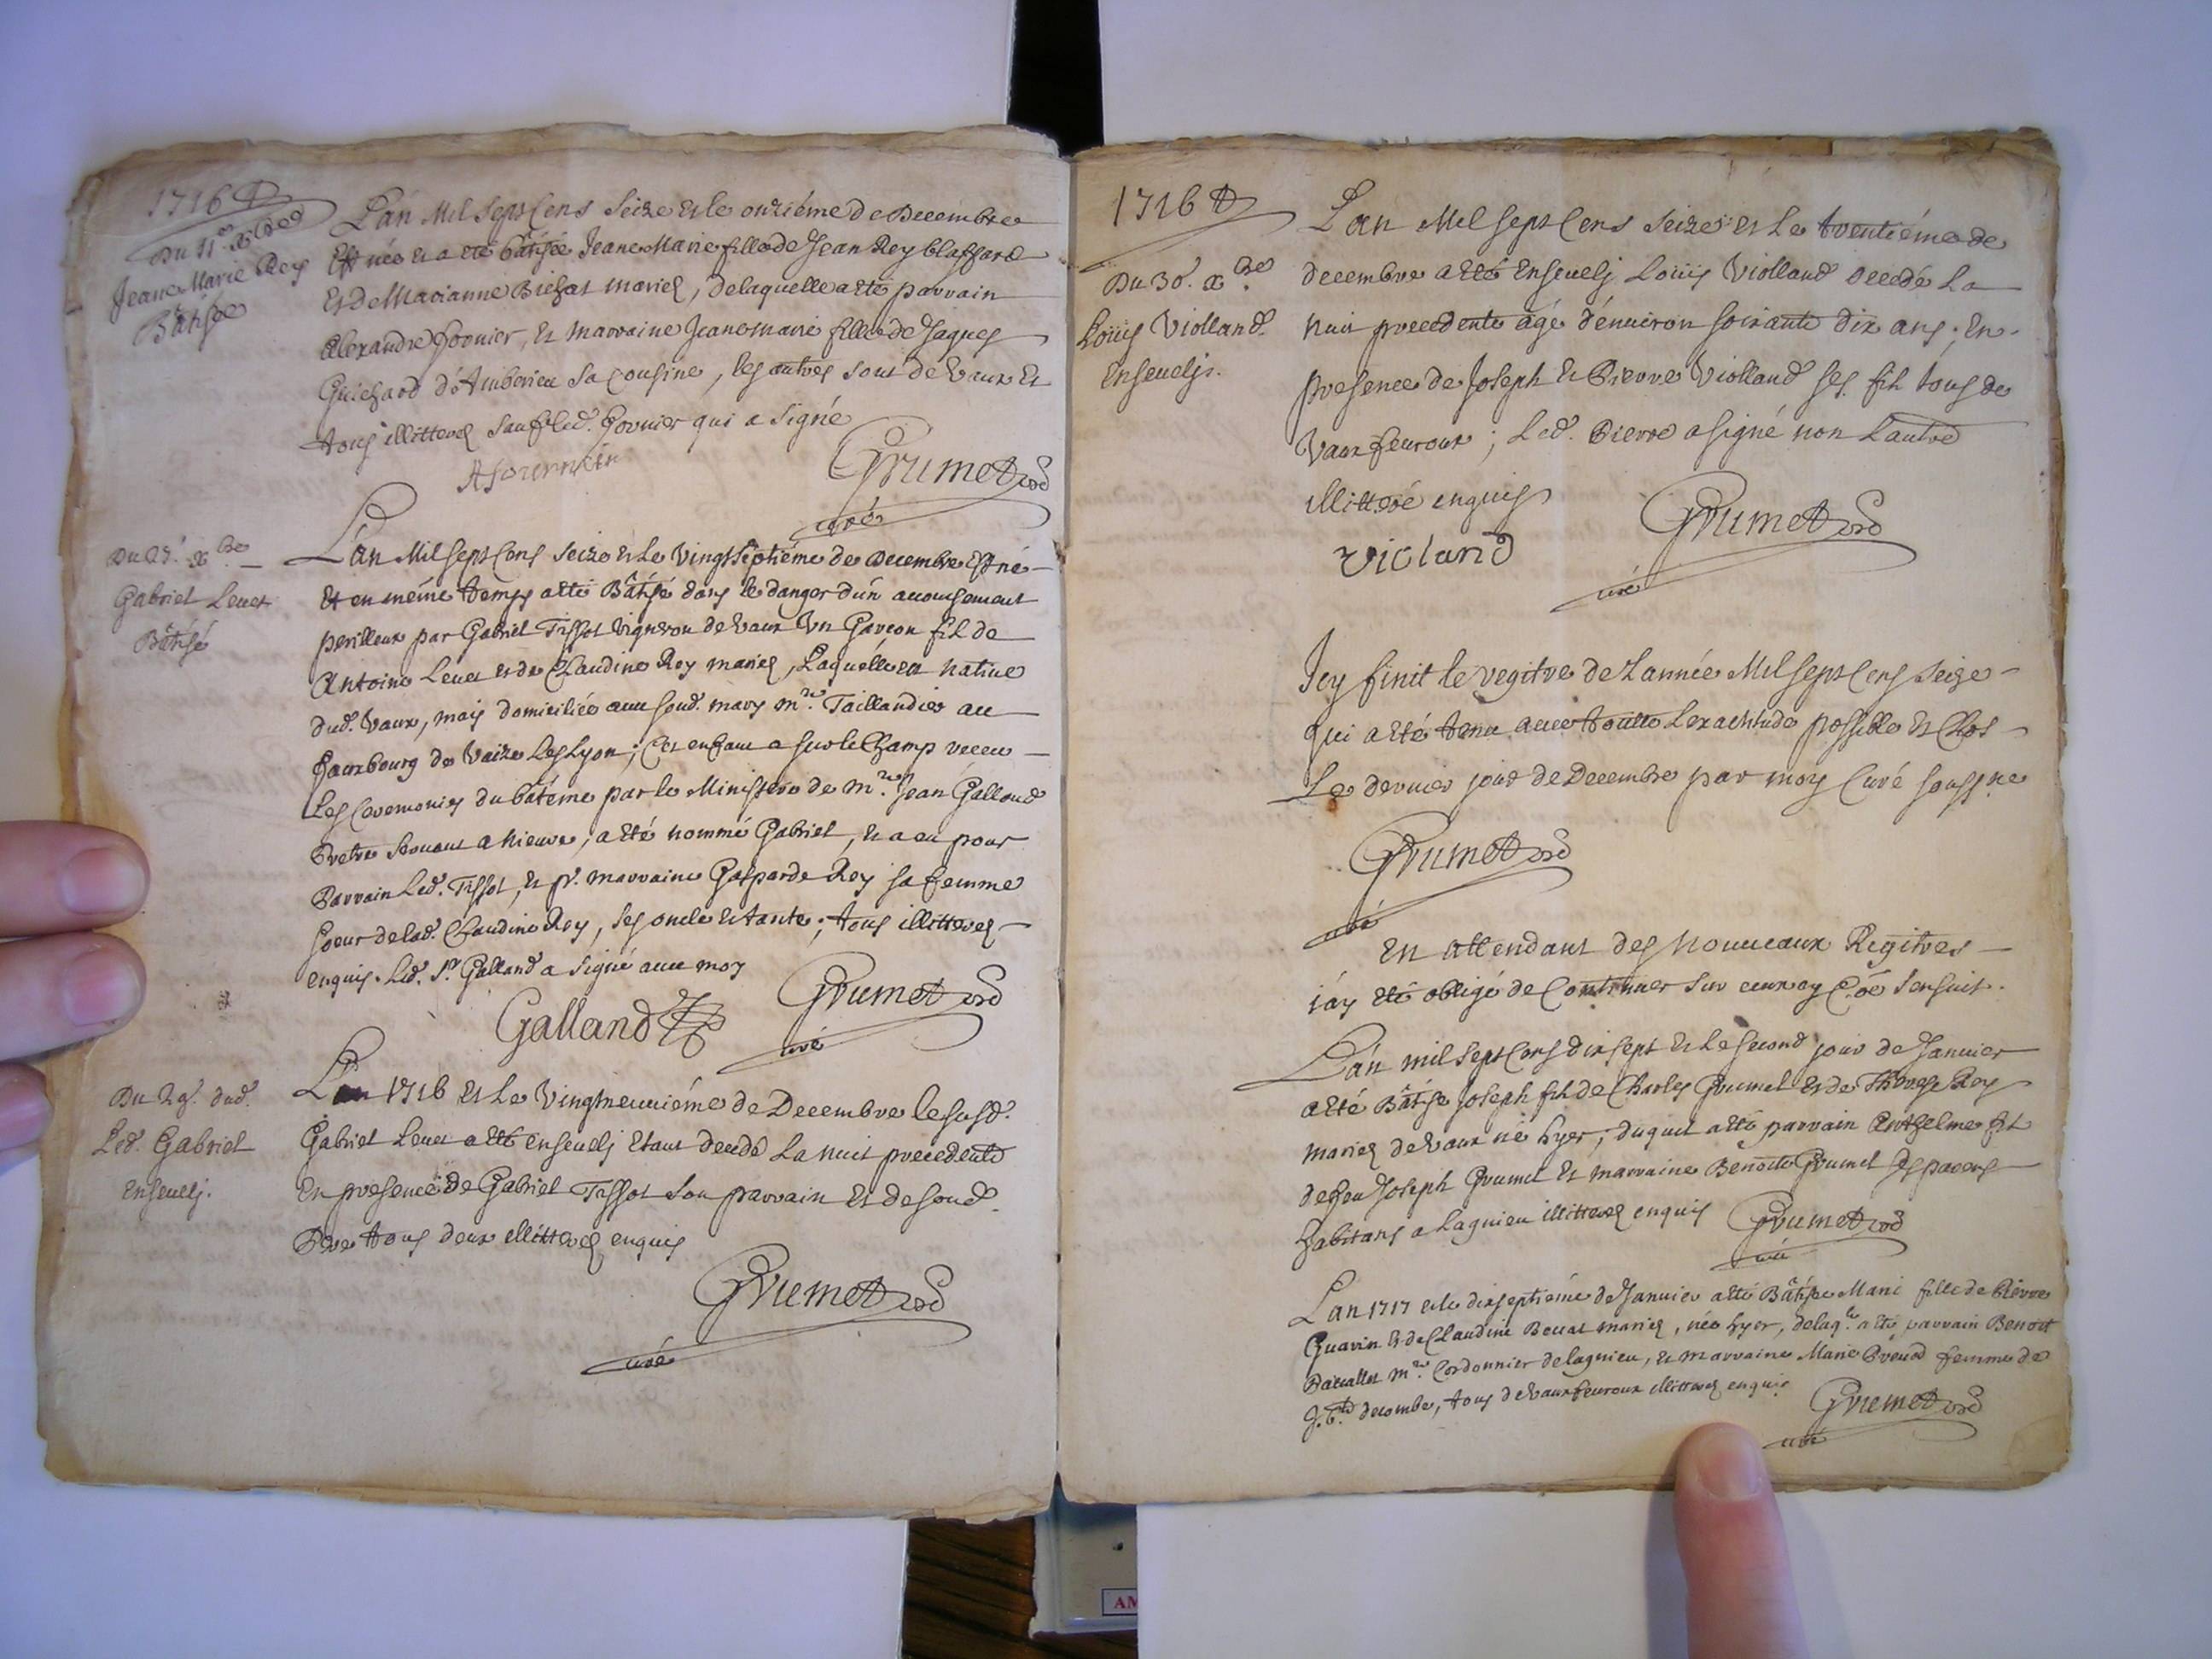 1716
Du 11e xbre
Jeane Marie Rey
Bâtisée
L'an Mil Sept Cens Seize et le onziéme de Decembre
Est née et a eté bâtisée Jeane Marie fille de Jean Rey blaffard
et de Marianne Bichat mariez, delaquelle a eté parrain
Alexandre fornier, et marraine Jeane marie fille de Jaques
Guichard d'Amberieu sa cousine, les autres sont de Vaux et
tous illitterez sauf led. fornier qui a signé
Grumet
curé
Du 27e xbre
Gabriel Levet
Bâtisé
L'an Mil Sept Cens Seize et Le Vingt Septiéme de Decembre Est né
Et en méme temps a eté Bâtisé dans le danger d'un acouchement
perilleux par Gabriel Tissot Vigneron de Vaux Un Garçon fils de
Antoine Levet et de Claudine Rey mariez, Laquelle est native
dud. Vaux, mais domiciliée avec sond. mary mre Taillandier au
fauxbourg de Vaize Les Lyon; Cet enfant a sur le Champ receu
Les Ceremonies du batéme par le Ministere de mre Jean Galland
Pretre servant a Nievre, a eté nommé Gabriel, et a eu pour
Parrain Led. Tissot, et pr. marraine Gasparde Rey sa femme
soeur de lad. Claudine Rey, ses oncle et tante; tous illitterez
enquis. Led. Sr Galland a signé avec moy
Galland
Grumet
curé
Du 29e dud.
Led. Gabriel
Ensevelj.
L'an 1716 et Le Vingtneuviéme de Decembre le susd.
Gabriel Levet a eté ensevelj etant decedé La nuit precedente
En presence de Gabriel Tissot son parrain et de sond.
Pere tous deux illitterez enquis
Grumet
curé
1716
Du 30e xbre
Loüis Violland
Ensevelj.
L'an Mil Sept Cens Seize et Le trentiéme de
decembre a eté Ensevelj Loüis Violland decedé La
nuit precedente agé d'environ soixante dix ans, En
presence de Joseph et Pierre Violland ses fils tous de
Vaux fevroux; Led. Pierre a signé non L'autre
illitteré enquis
violand
Grumet
curé
Icy finit le regitre de L'année Mil Sept Cens Seize
qui a eté tenu avec toutte L'exactitude possible et Clos
Le dernier jour de Decembre par moy Curé soussigné
Grumet
curé
En attendant des Nouveaux Regitres
j'ay eté obligé de Continuer sur ceux cy Cõe s'ensuit.
L'an mil sept Cens dix sept et Le second jour de Janvier
a eté Bâtisé Joseph fils de Charles Grumet et de Therese Rey
mariez de Vaux né hyer; duquel a eté parrain Anthelme fils
de feu Joseph Grumet et marraine Benoite Grumet ses parens
habitans a Lagnieu illitterez enquis
Grumet
curé
L'an 1717 et le dixseptiéme de Janvier a eté Bâtisée Marie fille de Pierre
Guarin et de Claudine Bouat mariez, née hyer, delaqle a eté parrain Benoit
mre Cordonnier de lagnieu, et marraine Marie femme de
J. Bte decombe, tous de Vaux fevroux illitterez enquis
Grumet
curé
AM